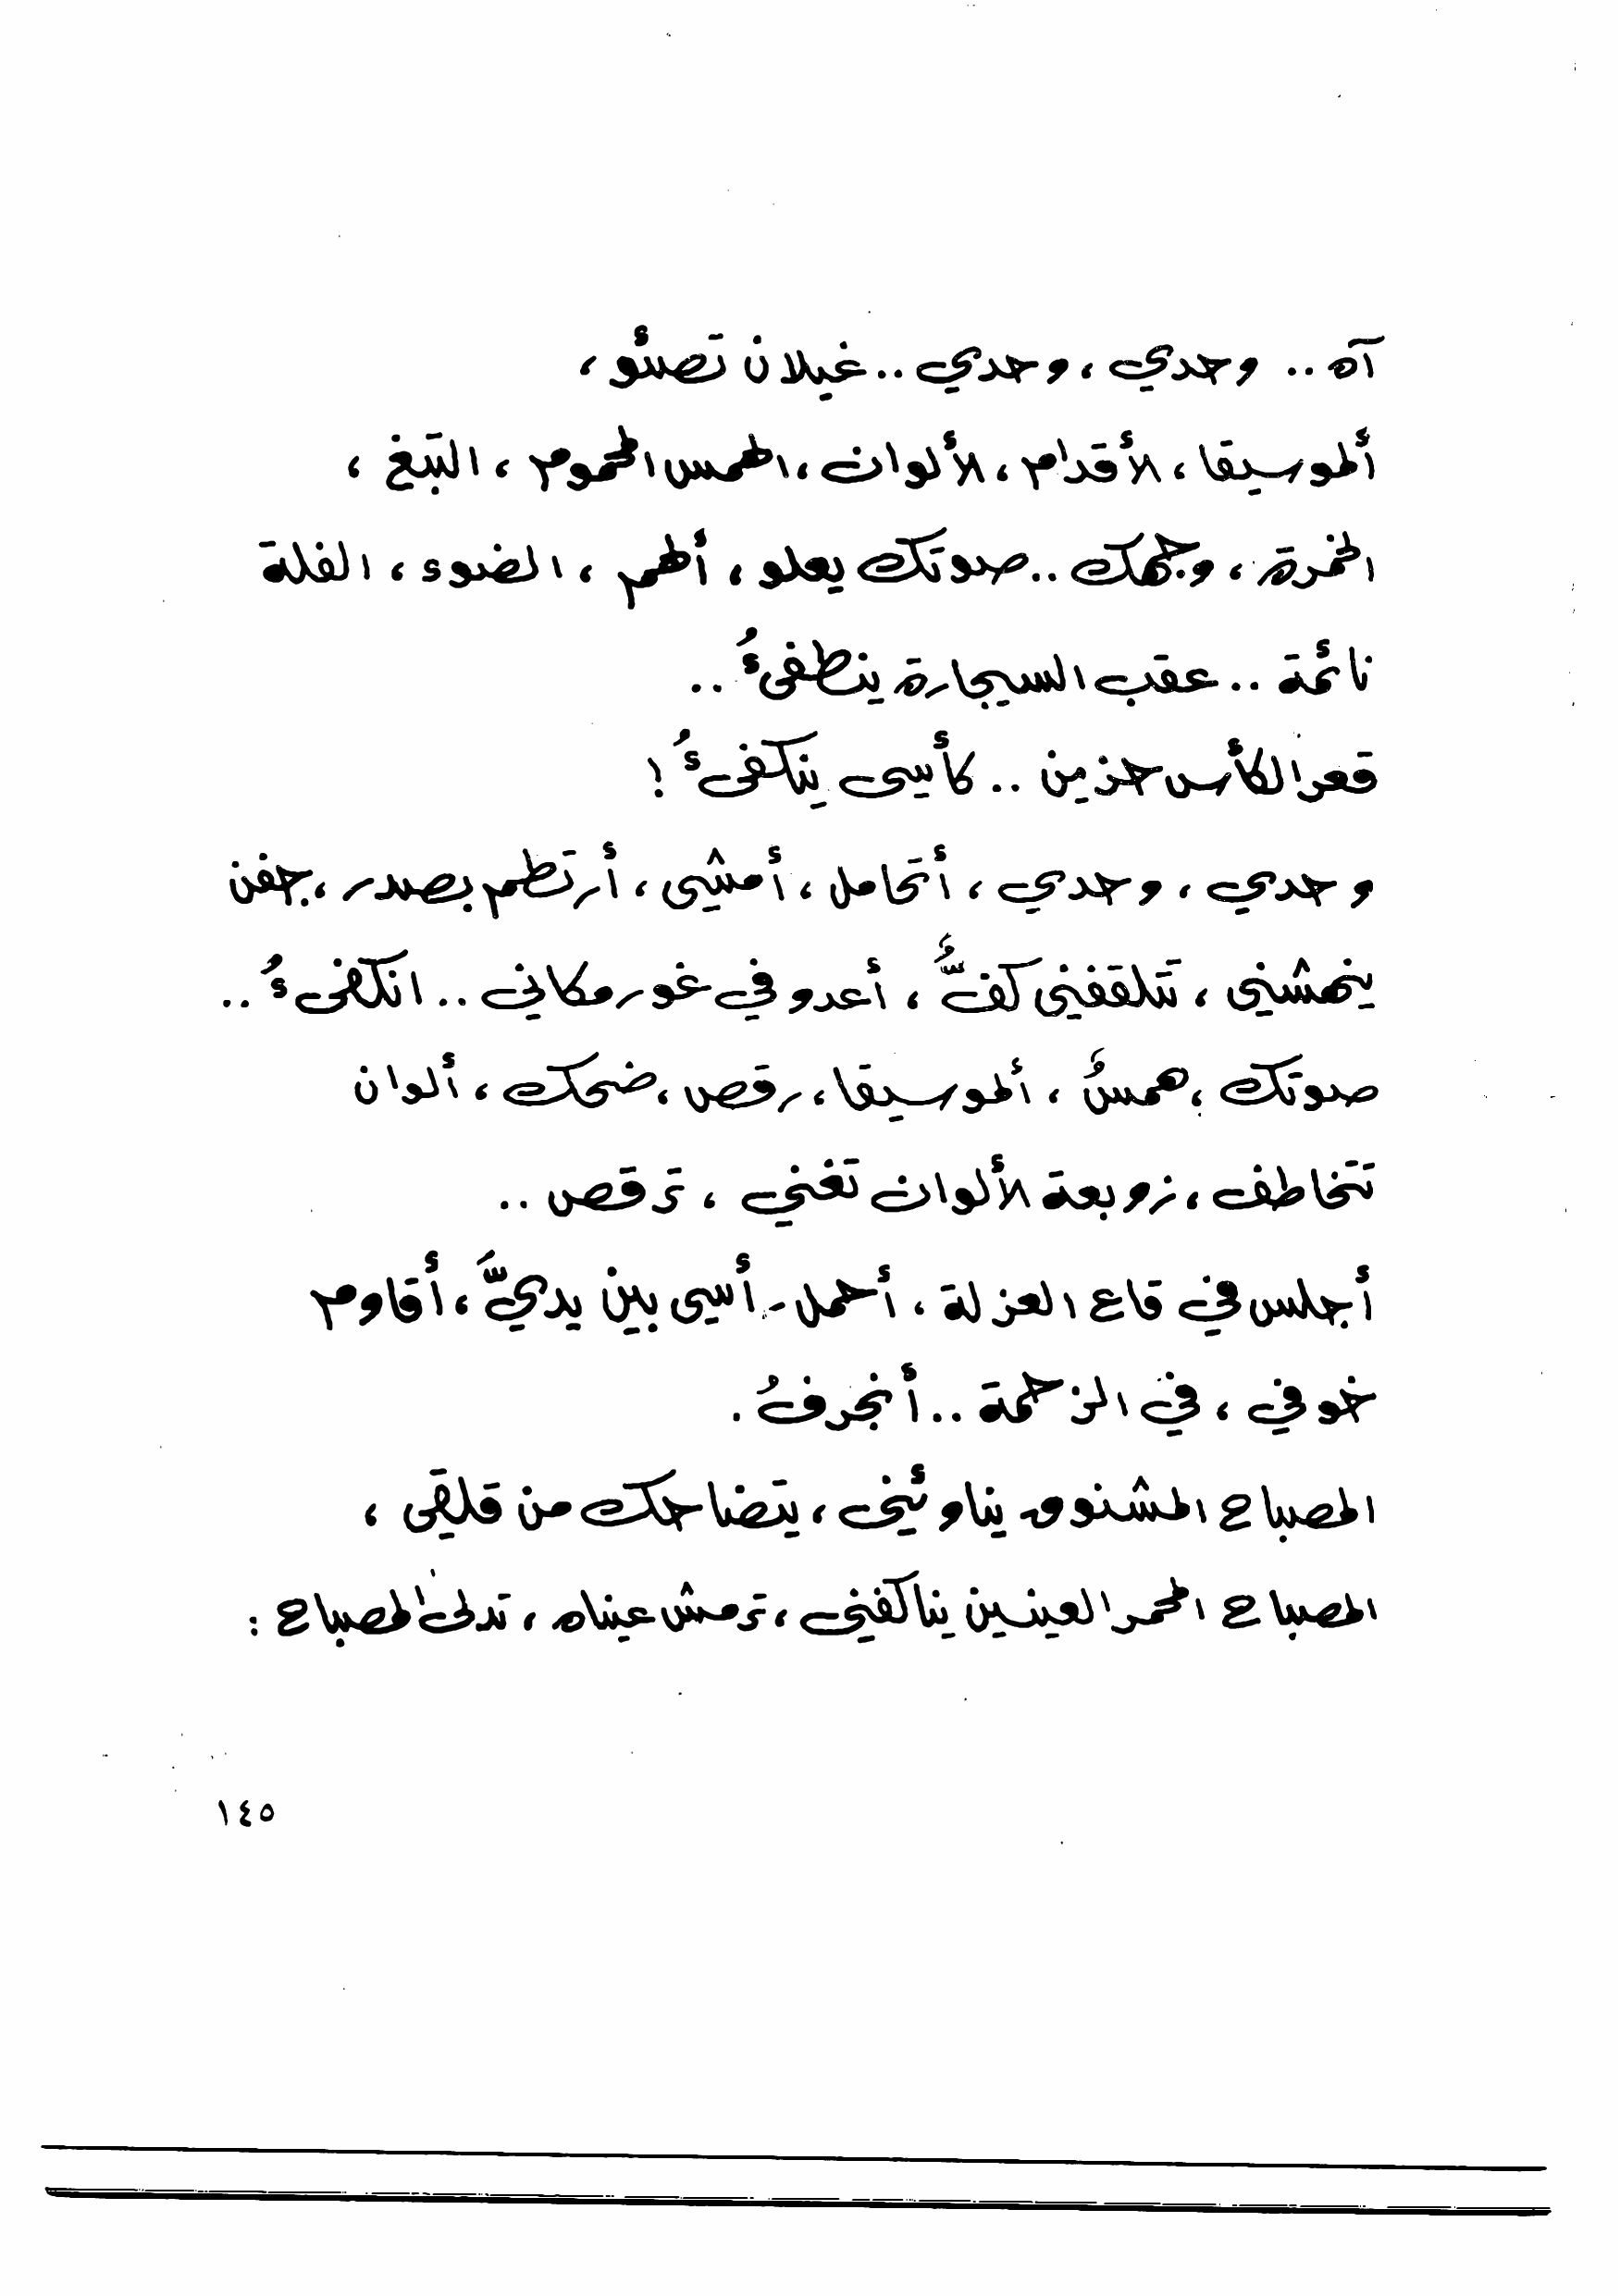 آه .. وحدي ، وحدي .. غيلان تصئو ،
ألموسيقا ، الأقدام ، الألوان ، الهمس المحموم ، التبغ ،
الخمرة ، وجهك .. صوتك يعلو ، ألهم ، الضوء ، الفلة
نائمة .. عقب السيجارة ينطفىءُ ..
قعر الكأس حزين .. كأسي ينكفىءُ !
وحدي ، وحدي ، أتحامل ، أمشي ، أرتطم بصدر ، جفن
ينهشني ، تتلقفني كفٌّ ، أعدو في غور مكاني .. انكفىءُ ..
صوتك ، همسٌ ، ألموسيقا ، رقص ، ضحك ، ألوان
تتخاطف ، زوبعة الألوان تغني ، ترقص ..
أجلس في قاع العزلة ، أحمل أسى بين يديَّ ، أقاوم
خوفي ، في الزحمة .. أنجرفُ .
المصباح المشنوق يناوئني ، يتضاحك من قلقي ،
المصباح المحمر العينين يناكفني ، ترمش عيناه ، تدلى المصباح :
١٤٥